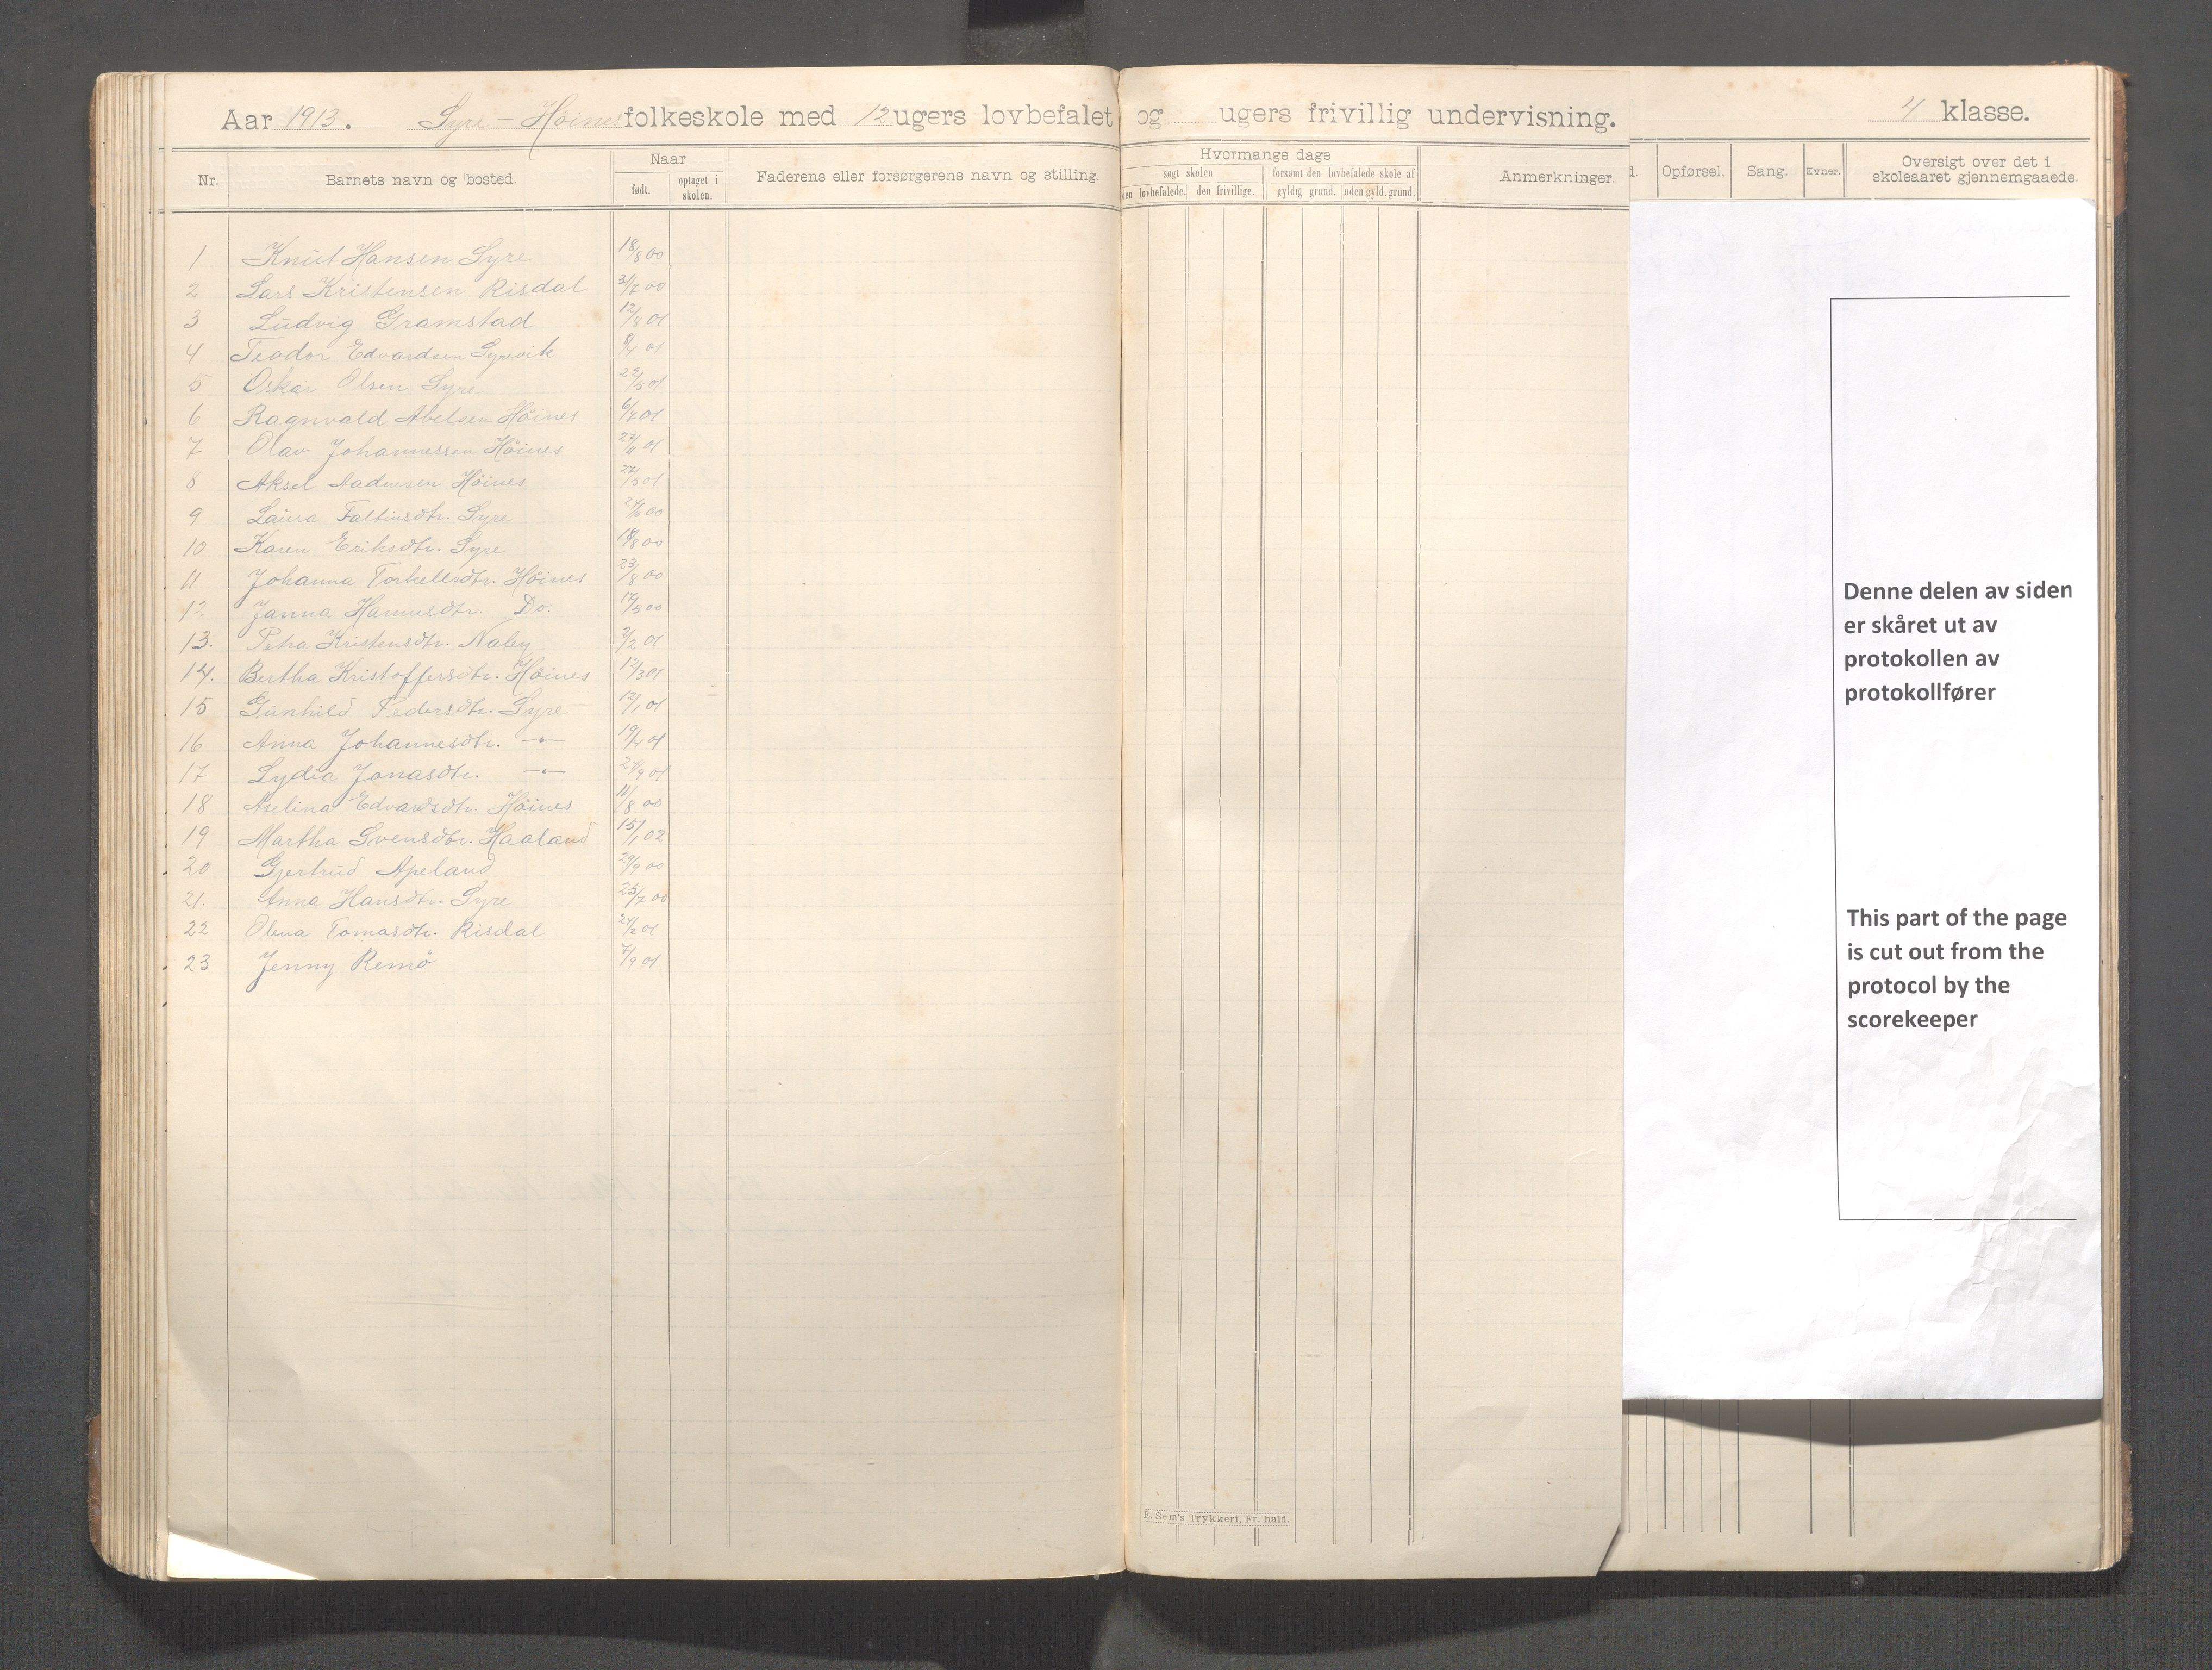 Aar 1913. Syre - Höines folkeskole med 12 ugers lovbefalet og ugers frivillig undervisning. 4 klasse.
Nr. Barnets navn og bosted. Naar født. optaget i skolen. Faderens eller forsørgerens navn og stilling. Hvormange dage søgt skolen den lovbefalede. den frivillige. forsømt den lovbefalede skole af gyldig grund. uden gyld. grund. Anmerkninger. Opførsel. Sang. Evner. Oversigt over det i skoleaaret gjennemgaaede.
1 Knut Hansen Syre 18/8 00
2 Lars Kristensen Risdal 31/7 00
3 Ludvig Gramstad 12/8 01
4 Teodor Edvardsen Syrevik 9/4 01
5 Oskar Olsen Syre 22/5 01
6 Ragnvald Abelsen Höines 6/7 01
7 Olav Johannessen Höines 24/11 01
8 Aksel Höines 27/5 01
9 Laura Faltinsdtr. Syre 00
10 Karen Eriksdtr. Syre 18/8 00
11 Johanna Torkellsdtr. Höines 23/8 00
12 Janna Hannesdtr. Do. 17/5 00
13. Petra Kristensdtr. 2/2 01
14. Bertha Kristoffersdtr. Höines 12/3 01
15 Gunhild Pedersdtr. Syre 12/1 01
16 Anna Johannesdtr. —"— 19/4 01
17 Lydia Jonasdtr. —"— 27/9 01
18 Aselina Edvardsdtr. Höines 11/8 00
19 Martha Svensdtr. Haaland 15/1 02
20 Gjertrud Apeland 29/9 00
21. Anna Hansdtr. Syre 25/7 00
22 Olena Tomasdtr. Risdal 24/2 01
23 Jenny Remö 7/9 01
E. Sem's Trykkeri, Fr. hald.
Denne delen av siden
er skåret ut av
protokollen av
protokollfører
This part of the page
is cut out from the
protocol by the
scorekeeper